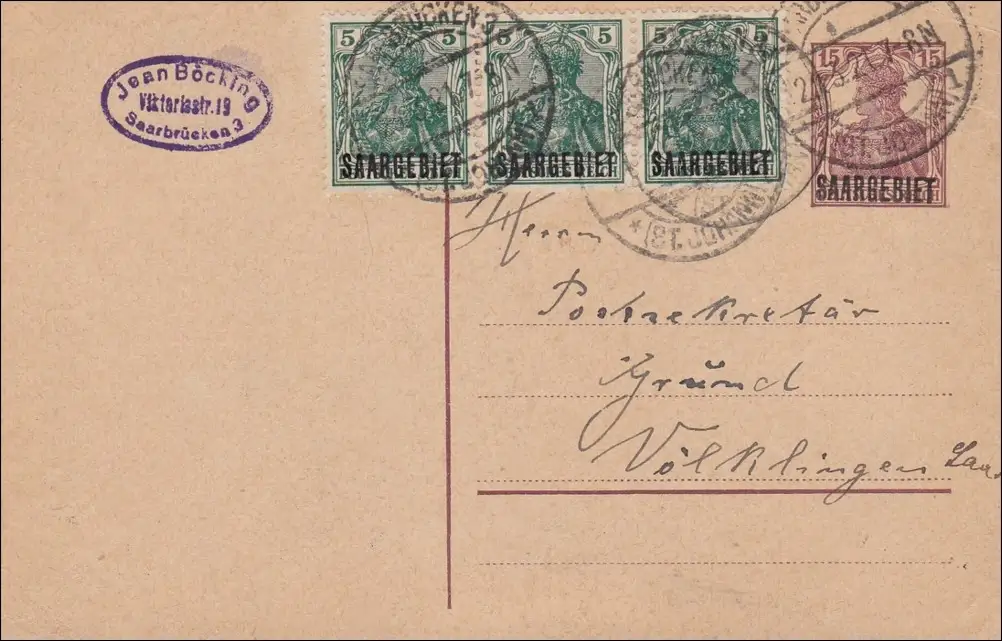 Jean Böcking
Viktoriastr. 19
Saarbrücken 3
5 5 5 5 5 5
SAARGEBIET SAARGEBIET SAARGEBIET
15 15
SAARGEBIET
(ST. JOHANN)
Herrn
Postsekretär
Gründ
Völklingen Saar